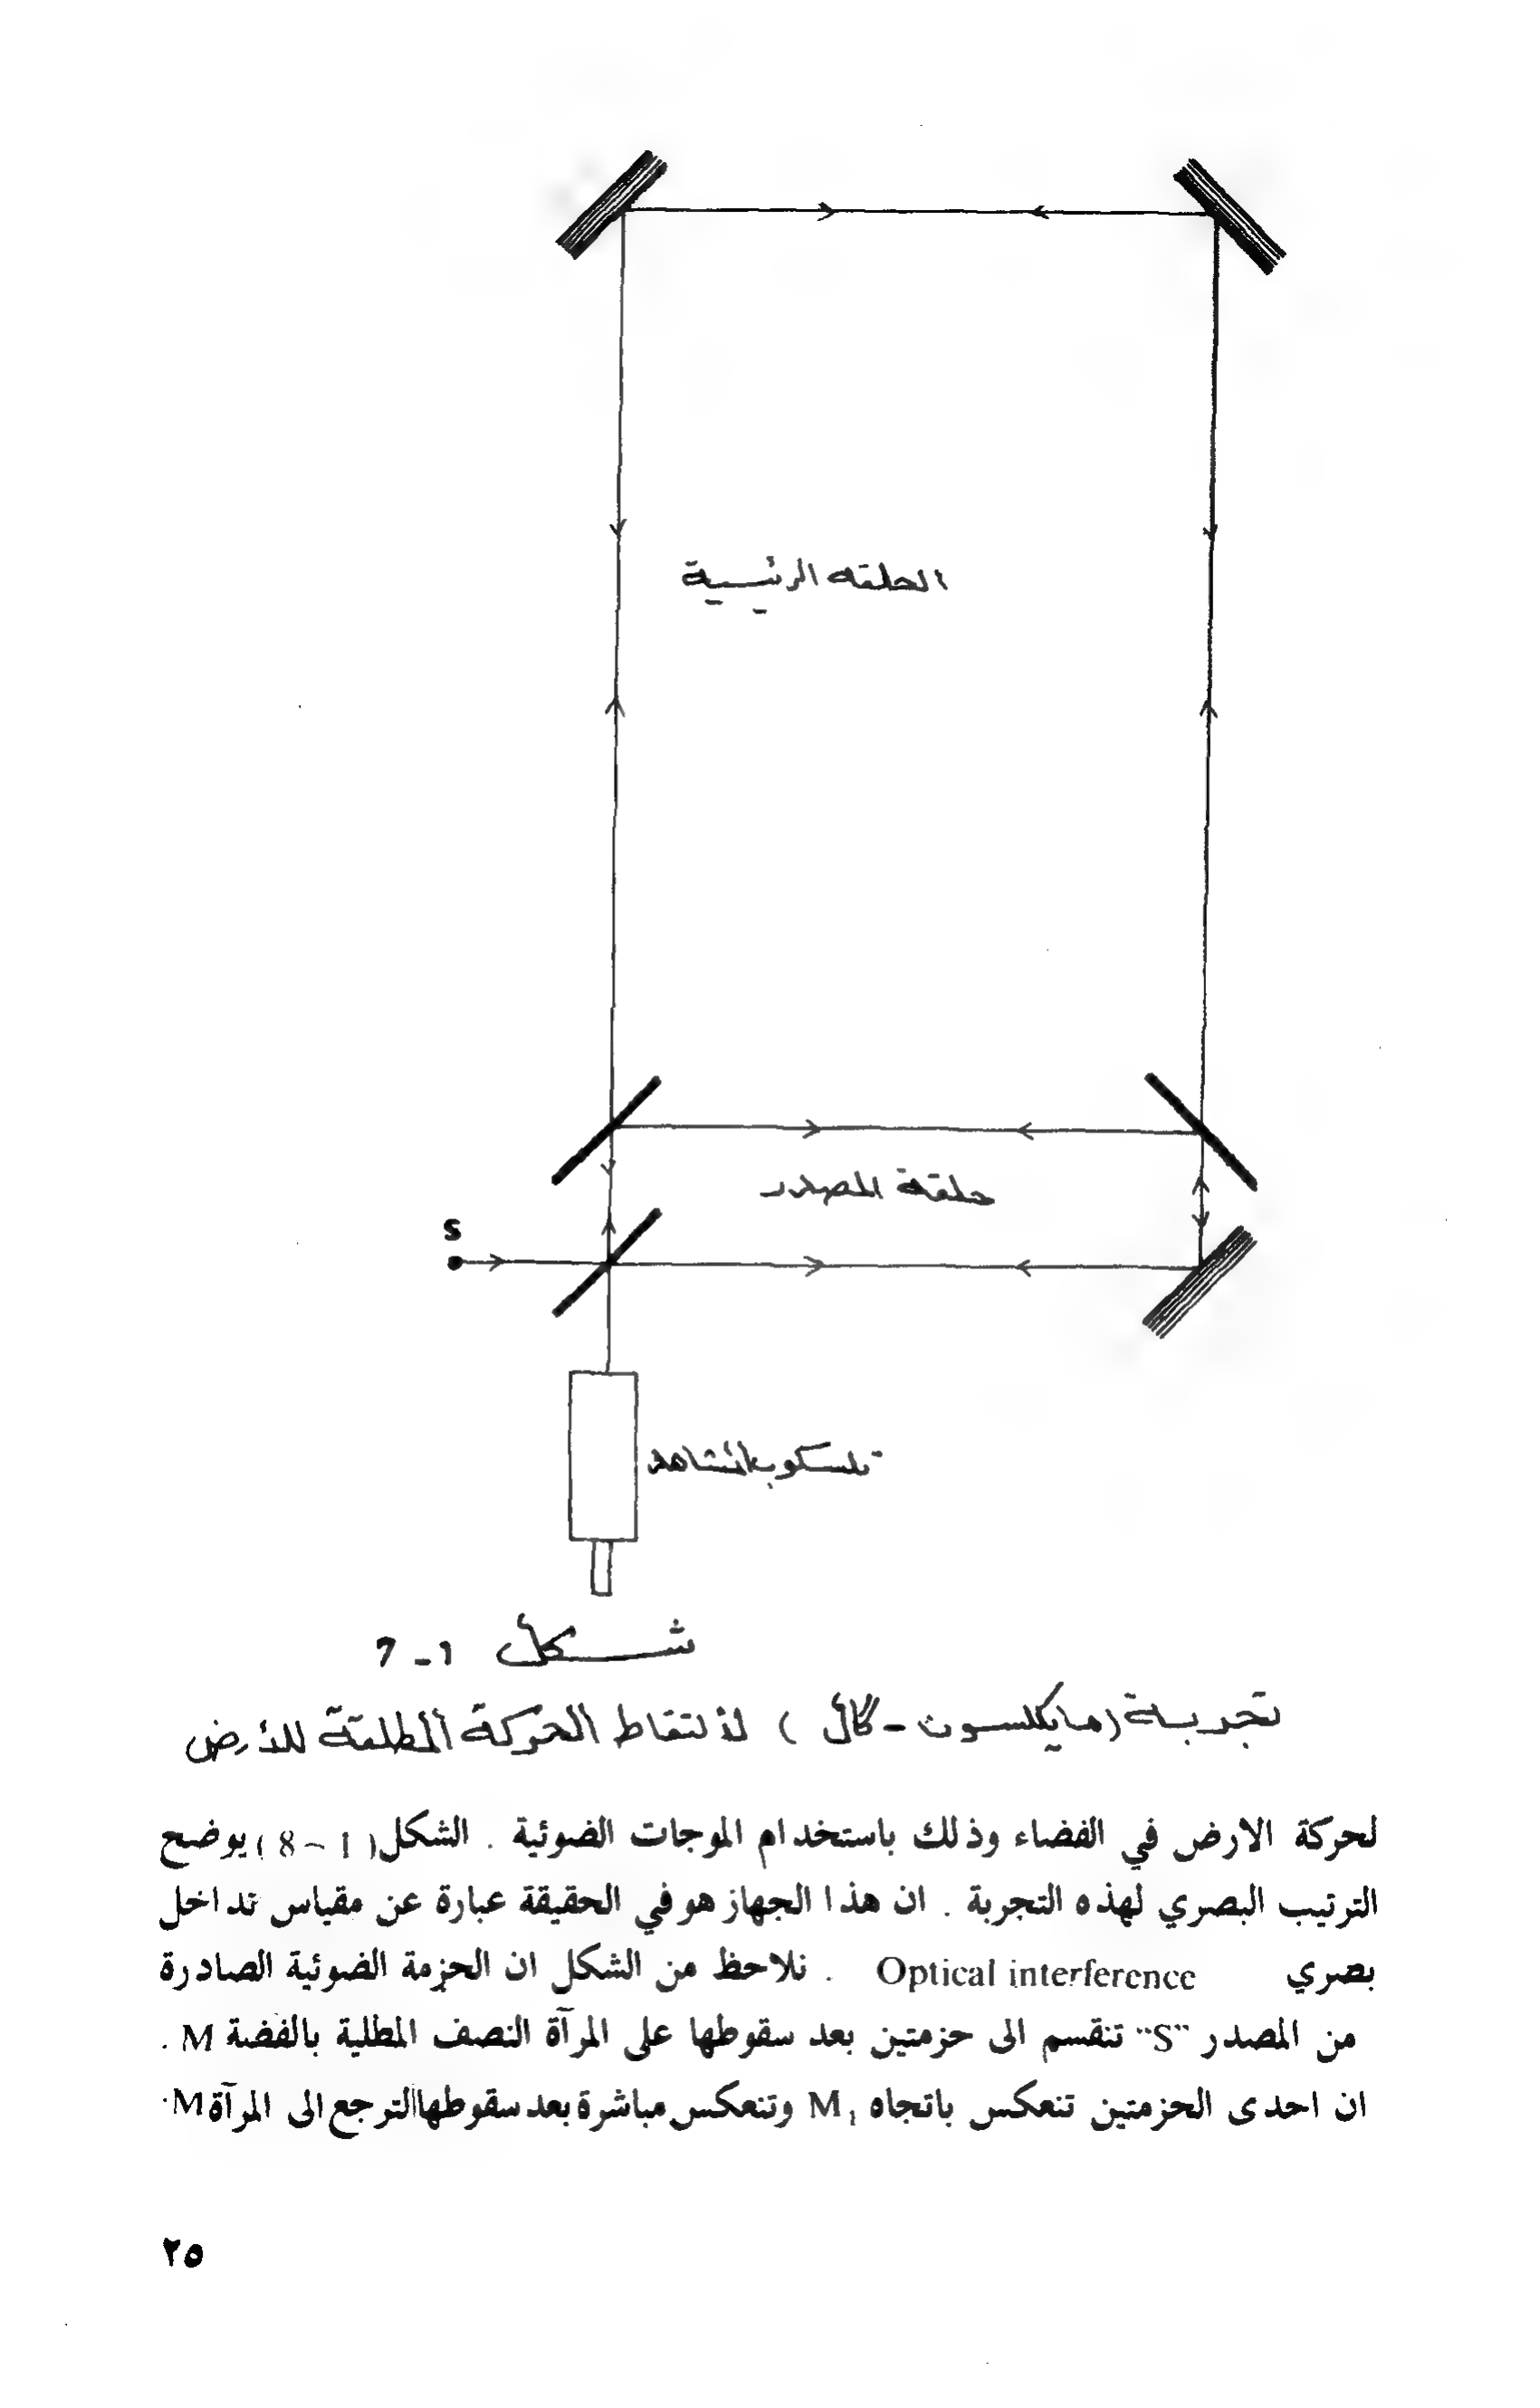 الحلقه الرئيسية
حلقة المصدر
S
تلسكوب المشاهد
شكل 1-7
تجربة (مايكلسون - كال) لالتقاط الحركة المطلقة للأرض
لحركة الارض في الفضاء وذلك باستخدام الموجات الضوئية . الشكل (1-8) يوضح
الترتيب البصري لهذه التجربة . ان هذا الجهاز هو في الحقيقة عبارة عن مقياس تداخل
بصري Optical interference . نلاحظ من الشكل ان الحزمة الضوئية الصادرة
من المصدر "S" تنقسم الى حزمتين بعد سقوطها على المرآة النصف المطلية بالفضة M .
ان احدى الحزمتين تنعكس باتجاه M₁ وتنعكس مباشرة بعد سقوطها لترجع الى المرآة M.
٢٥